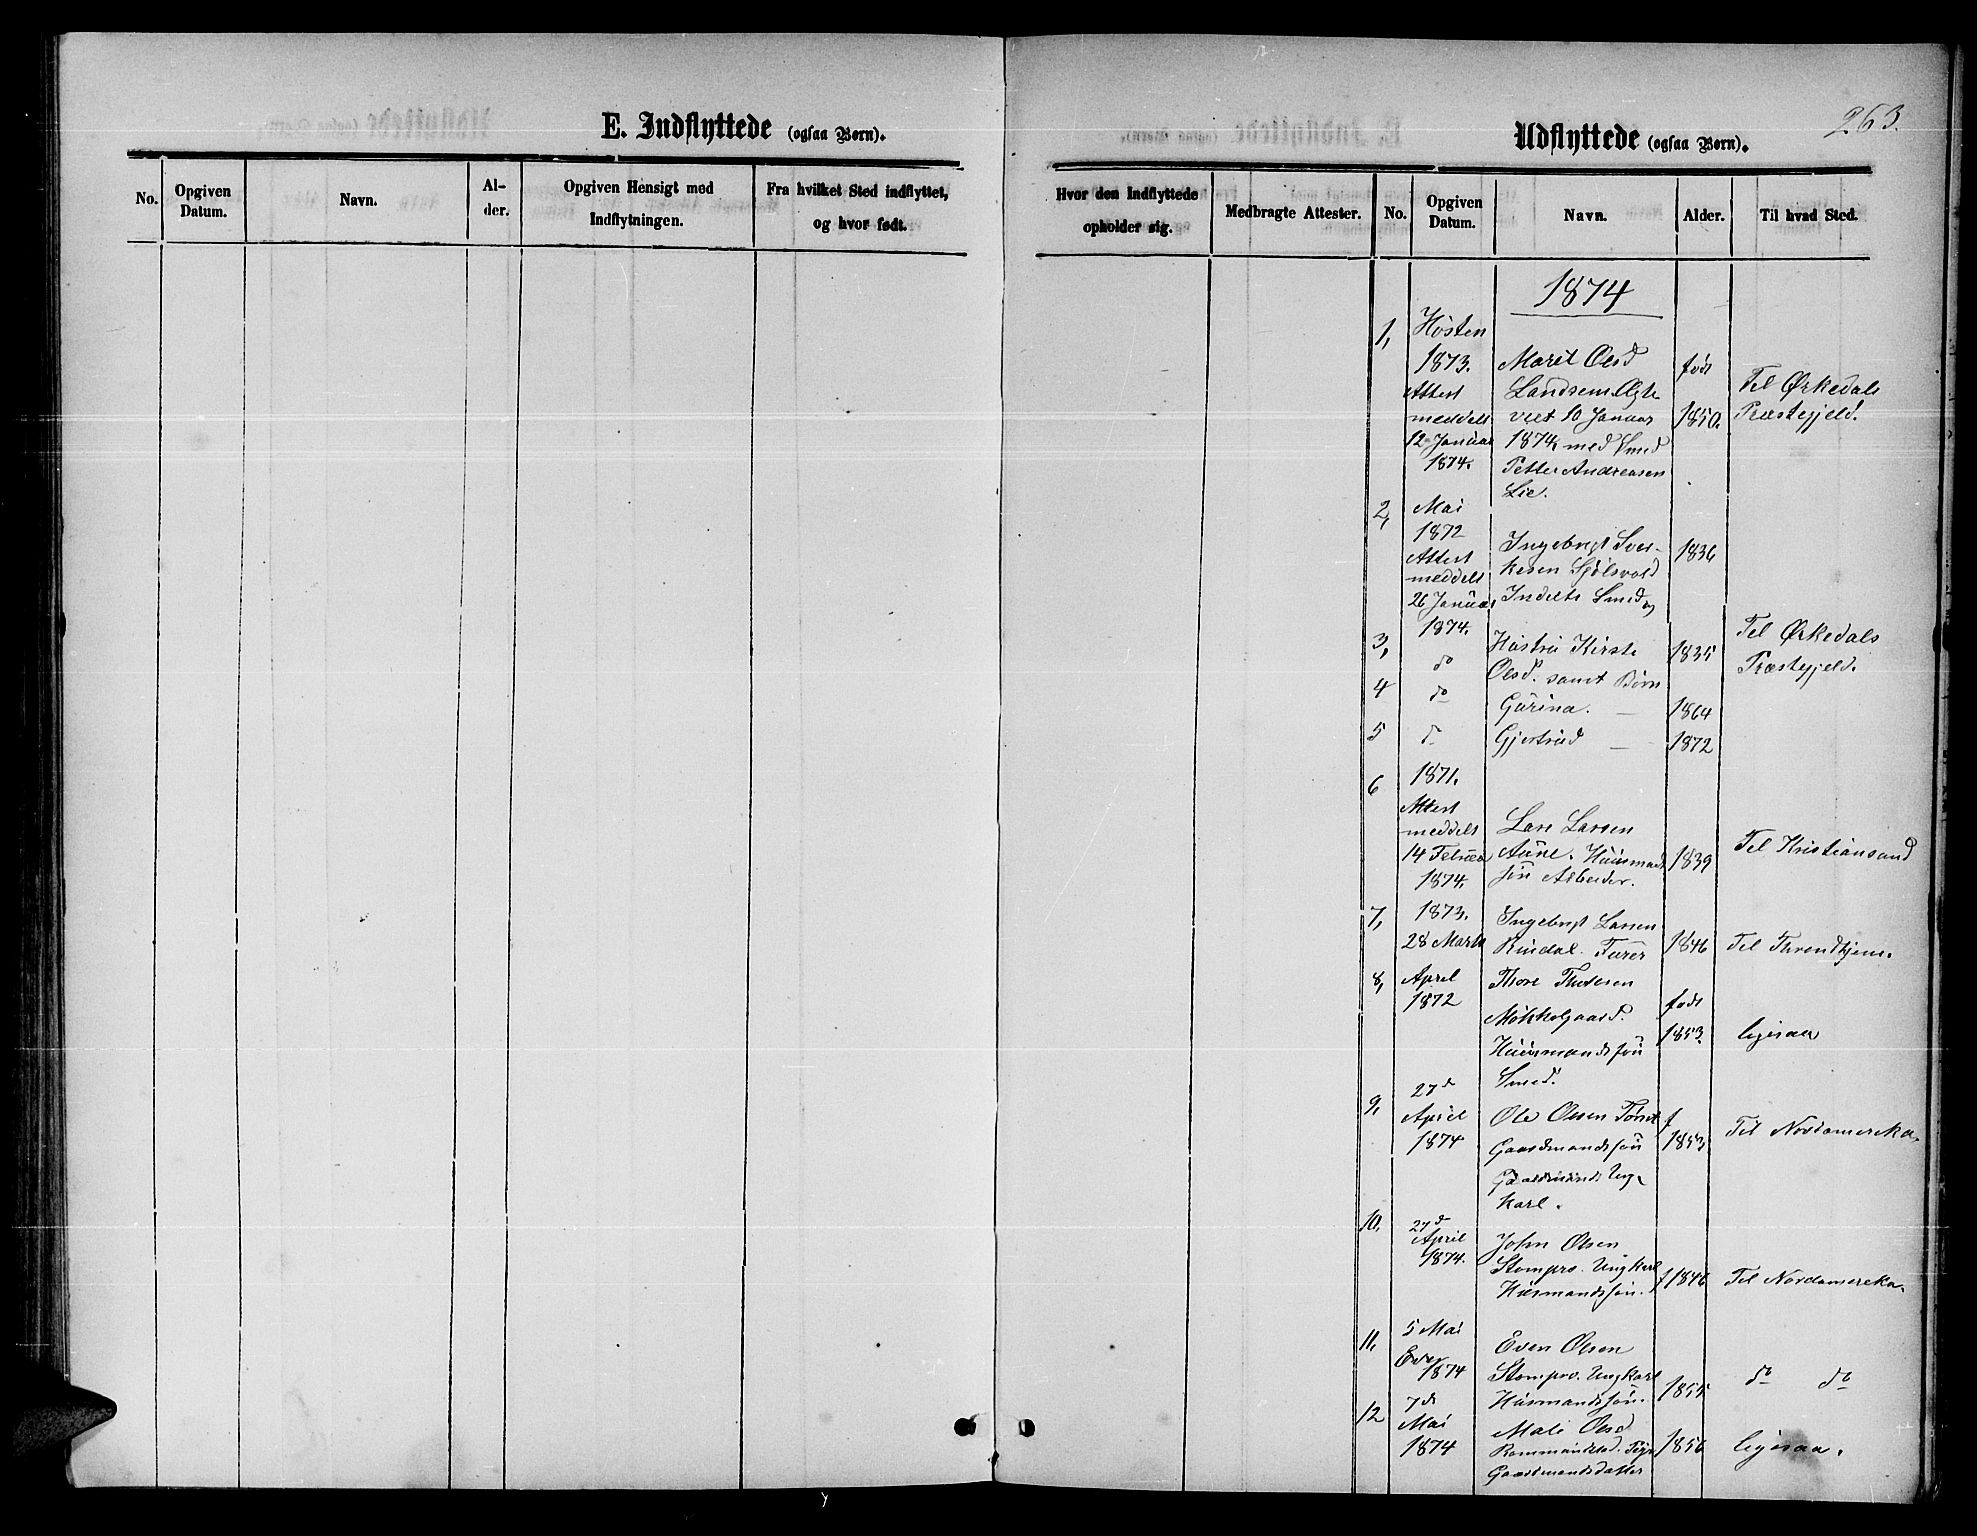 E. Indflyttede (ogsaa Børn).
No.
Opgiven Datum.
Navn.
Al-
der.
Opgiven Hensigt med
Indflytningen.
Fra hvilket Sted indflyttet,
og hvor født.
263.
Udflyttede (ogsaa Børn).
Hvor den Indflyttede
opholder sig.
Medbragte Attester.
No.
Opgiven Datum.
Navn.
Alder.
Til hvad Sted.
1874
1, Høsten
1873. Marit Olsd født
Attest Landsem Ægte Til Ørkedals
meddelt viet 10 Januar 1850. Præstegjeld.
12 Januar 1874 med Smed
1874. Petter Andreasen
Lie.
2, Mai
1872
Attest Ingebrigt Sver- 1836
meddelt kesen
26 Januar Inderts Smed og
1874. Til Ørkedals
3, do Hustru Kirsti 1835 Præstegjeld.
Olsd. samt Børn
4 do Gurina. — 1864
5 do Gjertrud — 1872
6 1871.
Attest
meddelt Lars Larsen
14 Februar Aune. Huusmands 1839 Til Kristiansund
1874. søn Arbeider.
7, 1873. Ingebrigt Larsen
28 Marts Rindal. 1846 Til Throndhjem.
8, April Thore Thoresen
1872 Møkkelgaard. født
Huusmandssøn 1853. ligesaa
Smed.
9, 27d
April Ole Olsen f
1874 Gaardmandssøn 1853 Til Nordamerika.
Ung-
karl.
10, 27d
April John Olsen
1874. Stompro. Ungkarl
Husmandssøn. f 1846 Til Nordamerika.
11, 5 Mai Even Olsen
Even
1874 Stompro. Ungkarl
Husmandssøn. 1855 do do
12 7d
Mai Mali Olsd
1874 Rommundstad. Pige 1856 ligesaa.
Gaardmandsdatter